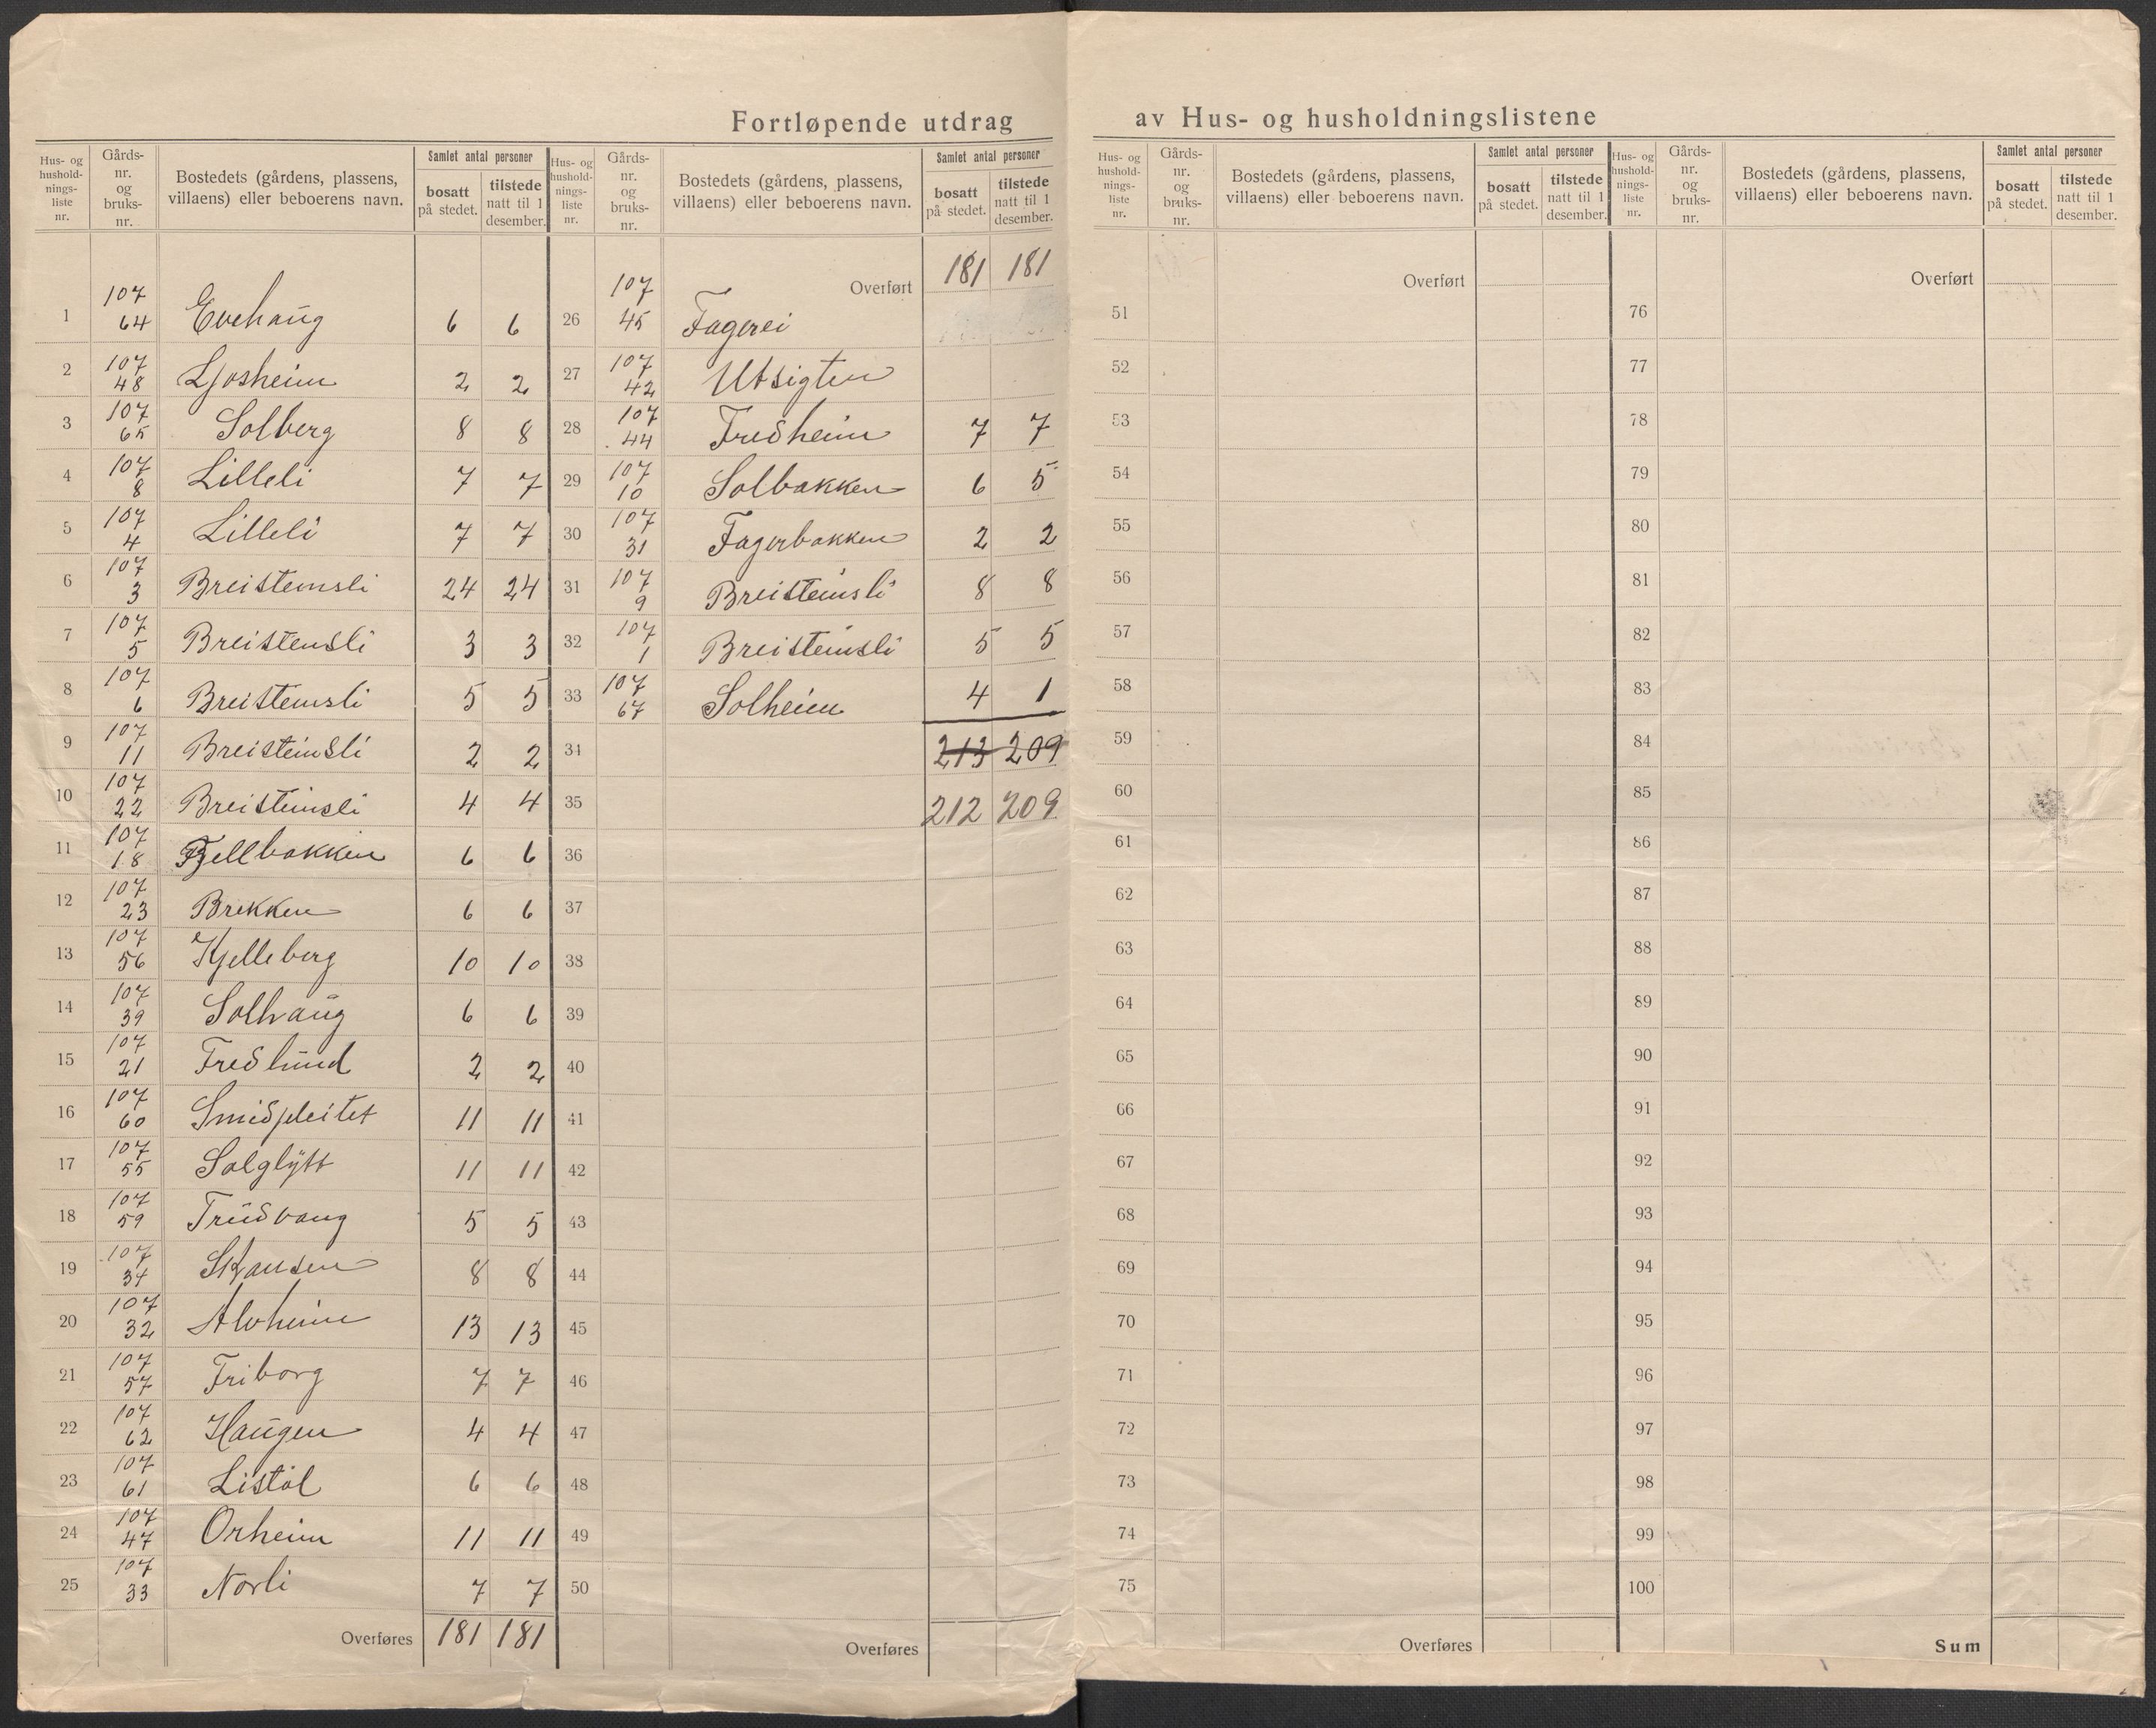 Fortløpende utdrag av Hus- og husholdningslistene
Hus- og hushold-nings-liste nr. Gårds-nr. og bruks-nr. Bostedets (gårdens, plassens, villaens) eller beboerens navn. Samlet antal personer bosatt på stedet. tilstede natt til 1 desember.
1 107 64 Evehaug 6 6
2 107 48 Ljosheim 2 2
3 107 65 Solberg 8 8
4 107 8 Lilleli 7 7
5 107 4 Lilleli 7 7
6 107 3 Breisteinsli 24 24
7 107 5 Breistensli 3 3
8 107 6 Breisteinsli 5 5
9 107 11 Breisteinsli 2 2
10 107 22 Breisteinsli 4 4
11 107 18 Fjellbakken 6 6
12 107 23 Brekken 6 6
13 107 56 Kjelleberg 10 10
14 107 39 Solhaug 6 6
15 107 21 Fredlund 2 2
16 107 60 Smidjeleitet 11 11
17 107 55 Solglytt 11 11
18 107 59 Trudvang 5 5
19 107 34 Skansen 8 8
20 107 32 Alvheim 13 13
21 107 57 Friborg 7 7
22 107 62 Haugen 4 4
23 107 61 Listøl 6 6
24 107 47 Orheim 11 11
25 107 33 Norli 7 7
Overføres 181 181
Hus- og hushold-nings-liste nr. Gårds-nr. og bruks-nr. Bostedets (gårdens, plassens, villaens) eller beboerens navn. Samlet antal personer bosatt på stedet. tilstede natt til 1 desember.
Overført 181 181
26 107 45 Fagerei
27 107 42 Utsigten
28 107 44 Fredheim 7 7
29 107 10 Solbakken 6 5
30 107 31 Fagerbakken 2 2
31 107 9 Breisteinsli 8 8
32 107 1 Breisteinsli 5 5
33 107 67 Solheim 4 1
34 213 209
35 212 209
36
37
38
39
40
41
42
43
44
45
46
47
48
49
50
Overføres
Hus- og hushold-nings-liste nr. Gårds-nr. og bruks-nr. Bostedets (gårdens, plassens, villaens) eller beboerens navn. Samlet antal personer bosatt på stedet. tilstede natt til 1 desember.
Overført
51
52
53
54
55
56
57
58
59
60
61
62
63
64
65
66
67
68
69
70
71
72
73
74
75
Overføres
Hus- og hushold-nings-liste nr. Gårds-nr. og bruks-nr. Bostedets (gårdens, plassens, villaens) eller beboerens navn. Samlet antal personer bosatt på stedet. tilstede natt til 1 desember.
Overført
76
77
78
79
80
81
82
83
84
85
86
87
88
89
90
91
92
93
94
95
96
97
98
99
100
Sum